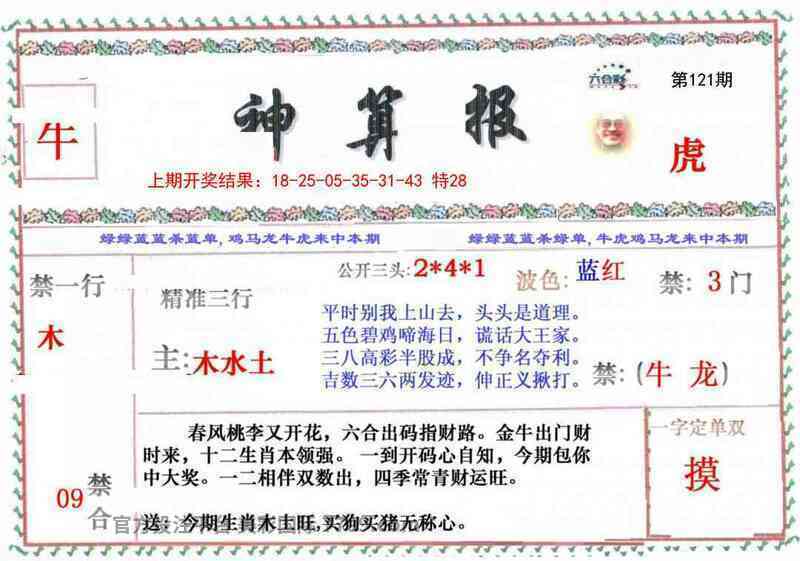 六合彩
第121期
神算报
牛
虎
上期开奖结果：18-25-05-35-31-43 特28
绿绿蓝蓝杀蓝单,鸡马龙牛虎来中本期
绿绿蓝蓝杀绿单,牛虎鸡马龙来中本期
禁一行
木
精准三行
主:木水土
公开三头:2*4*1
波色:蓝红
禁:3门
平时别我上山去，头头是道理。
五色碧鸡啼海日，谎话大王家。
三八高彩半股成，不争名夺利。
吉数三六两发迹，伸正义揪打。
禁:(牛 龙)
09
禁
合
春风桃李又开花，六合出码指财路。金牛出门财
时来，十二生肖本领强。 一到开码心自知，今期包你
中大奖。一二相伴双数出，四季常青财运旺。
送 今期生肖木土旺,买狗买猪无称心。
一字定单双
摸